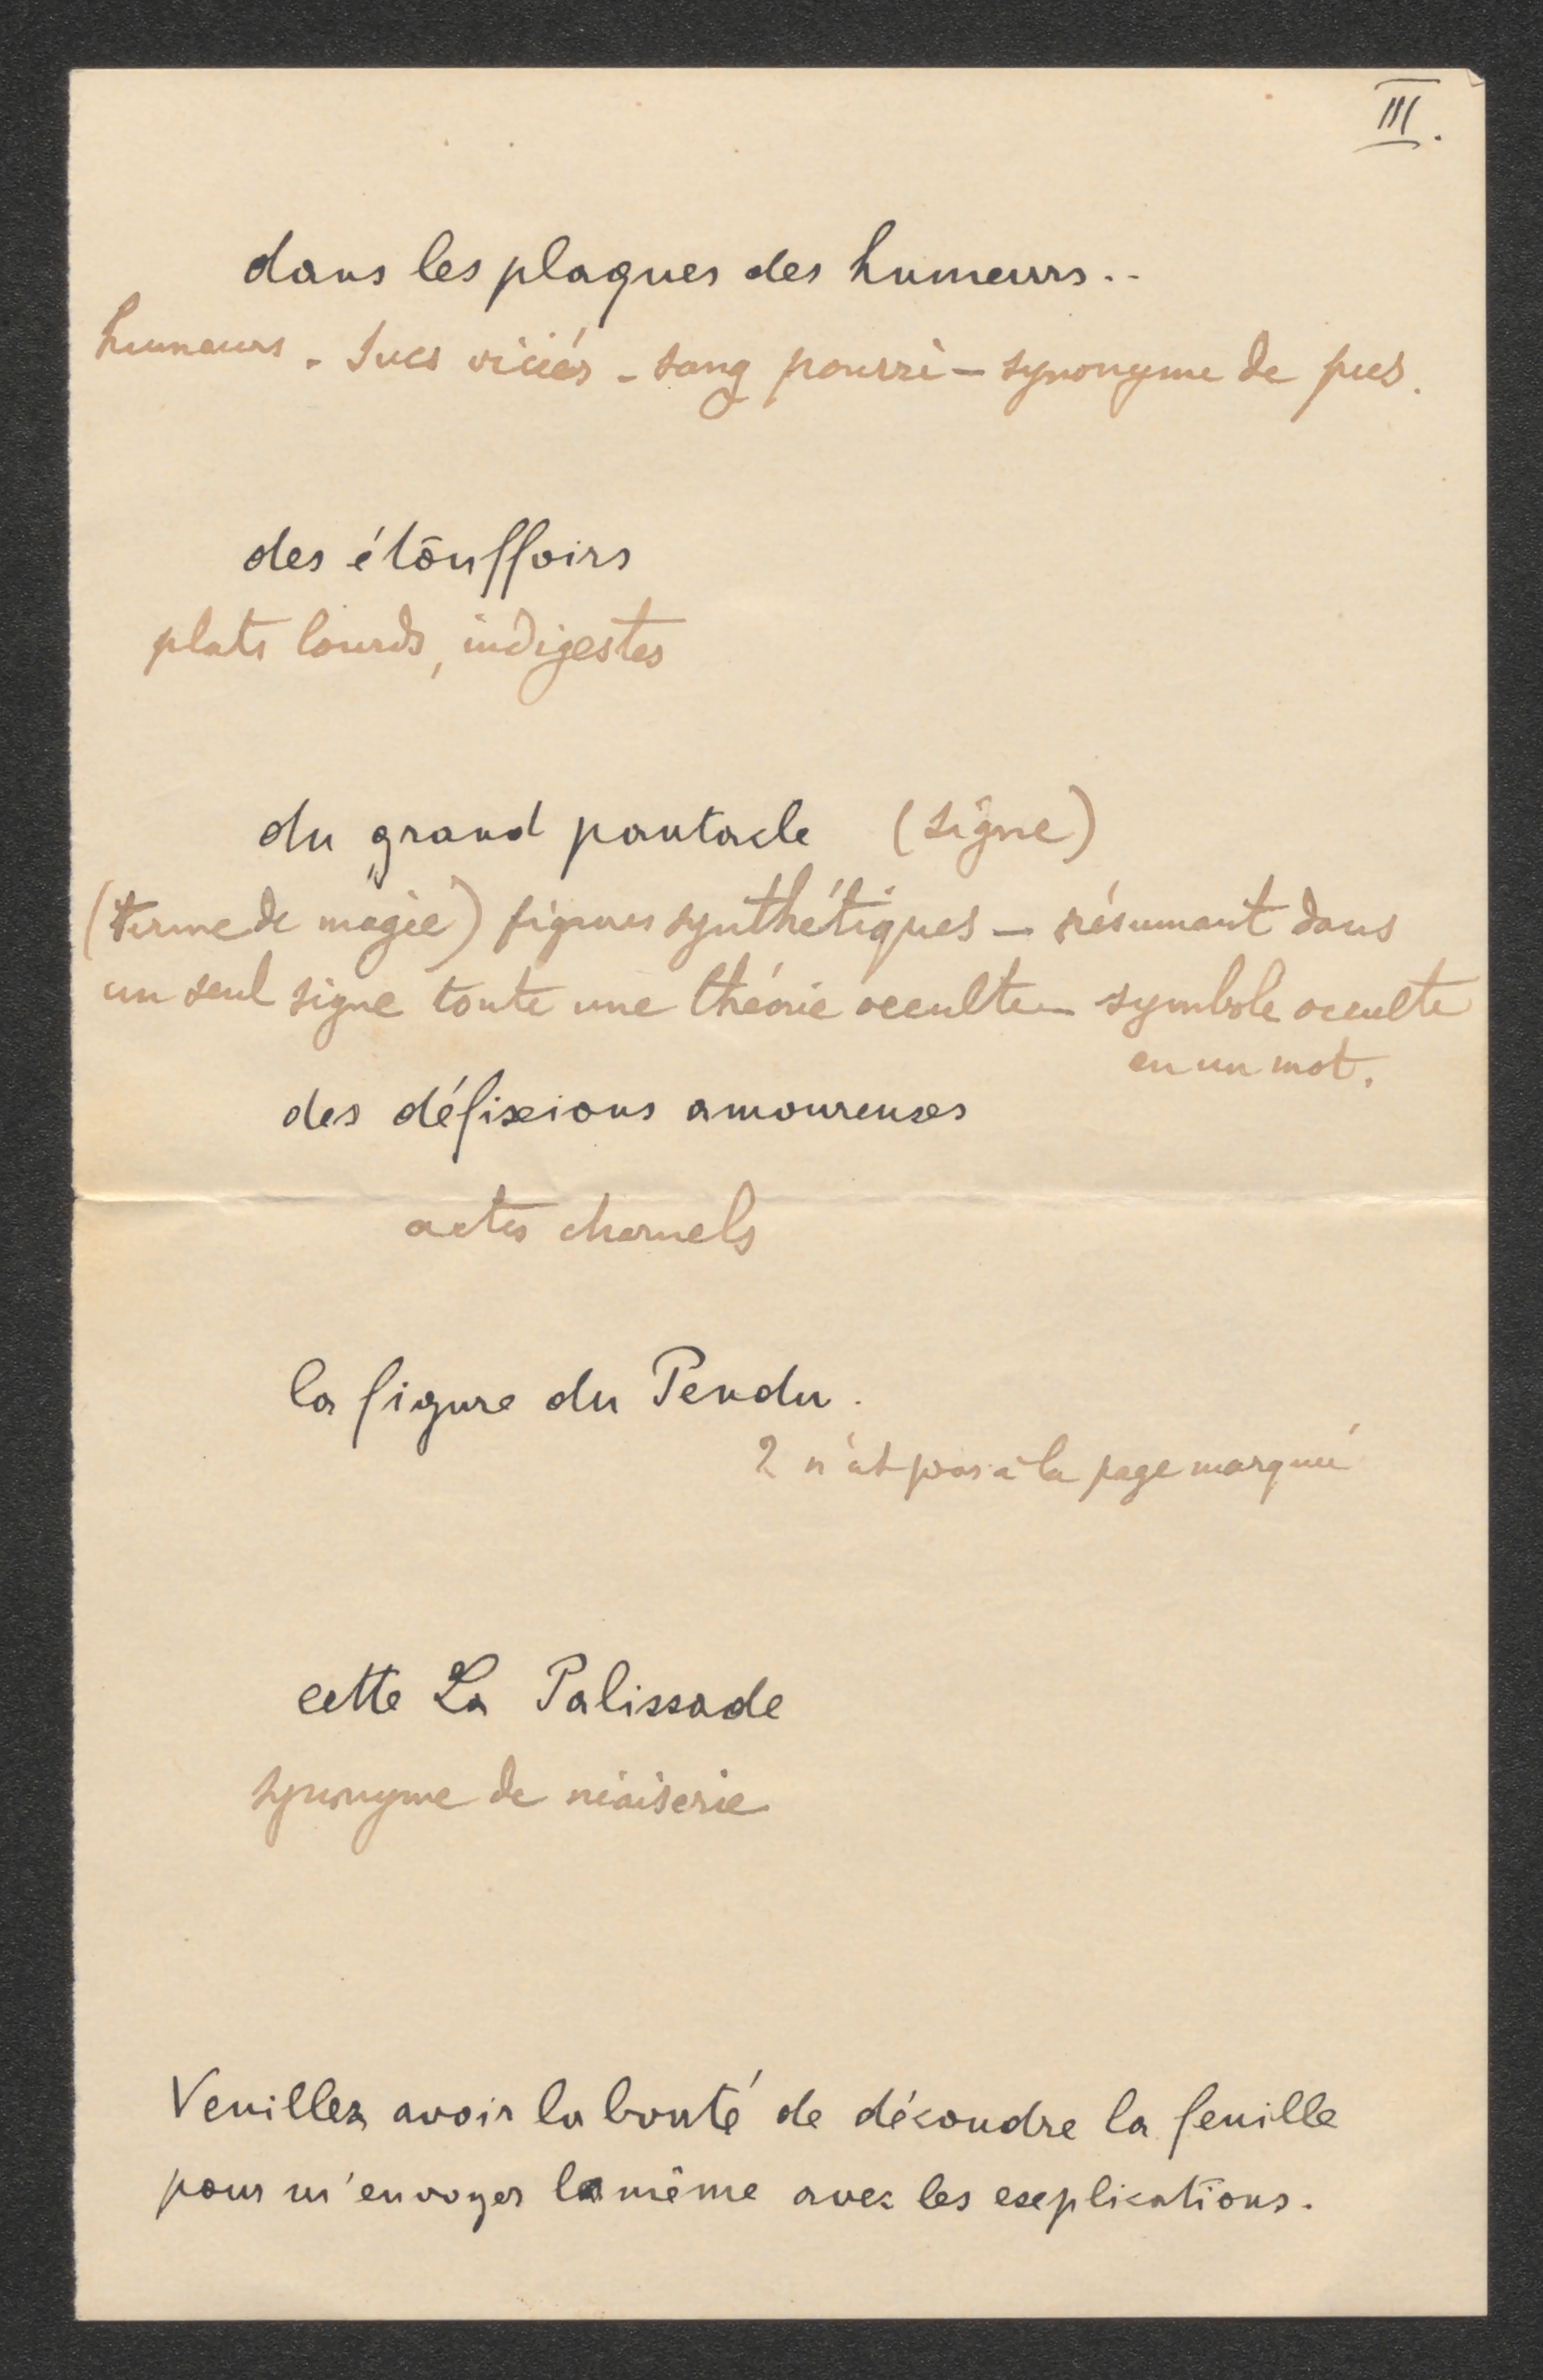 III.
dans les plaques des humeurs..
humeurs - sucs viciés - sang pourri - synonyme de pus.
des étouffoirs
plats lourds, indigestes
du grand pantacle (signe)
(terme de magie) figures synthétiques - résumant dans
un seul signe toute une théorie occulte - symbole occulte
en un mot.
des défixions amoureuses
actes charnels
la figure du Pendu.
? n'est pas à la page marquée
cette La Palissade
synonyme de niaiserie
Veuillez avoir la bonté de découdre la feuille
pour m'envoyer la même avec les explications.